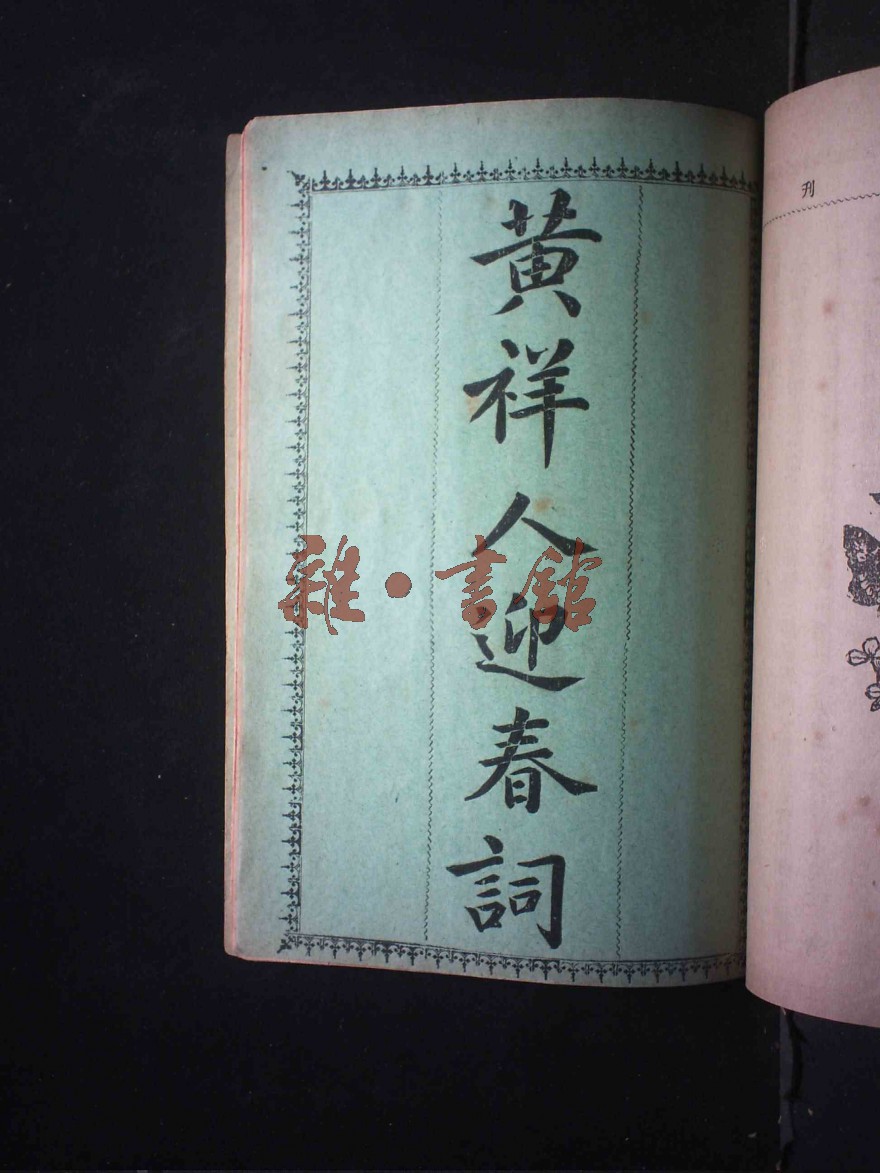 刊
黄祥人迎春詞
雜·書館